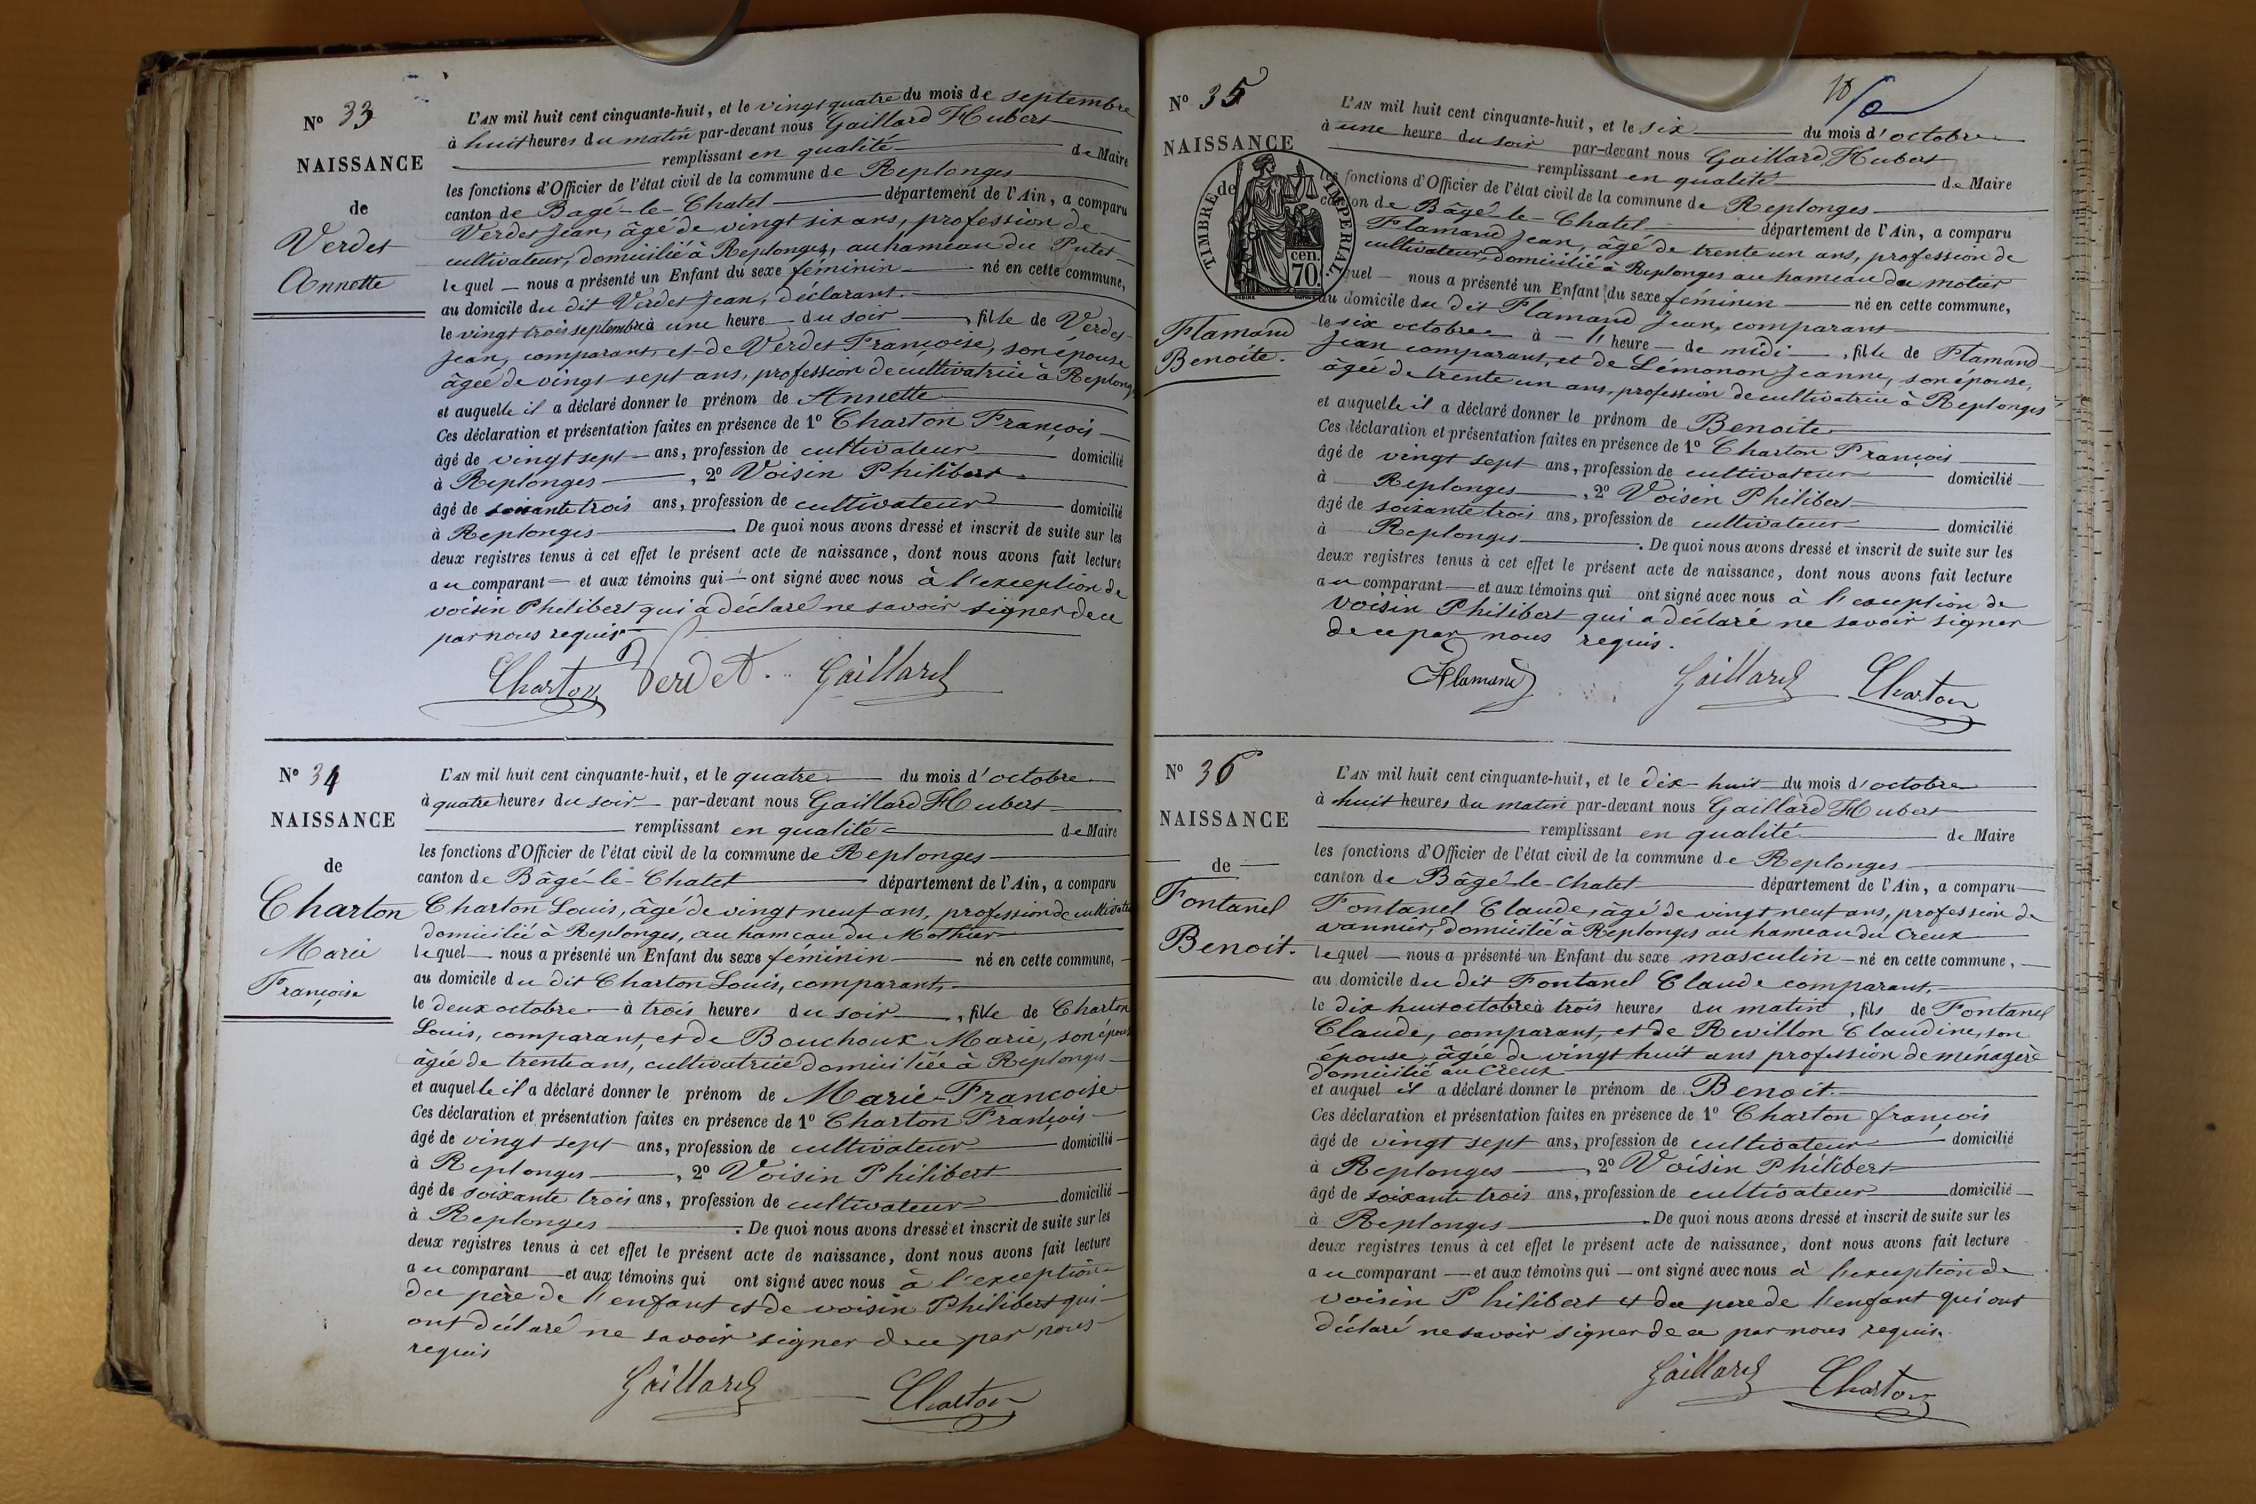 N° 33
NAISSANCE
de
Verdet
Annette
L'AN mil huit cent cinquante-huit, et le vingt quatre du mois de septembre
à huit heures du matin par-devant nous Gaillard Hubert
remplissant en qualité de Maire
les fonctions d'Officier de l'état civil de la commune de Replonges
canton de Bagé-le-Chatel département de l'Ain, a comparu
Verdet Jean, âgé de vingt six ans, profession de
cultivateur, domicilié à Replonges, au hameau du Putet
lequel nous a présenté un Enfant du sexe féminin né en cette commune,
au domicile du dit Verdet Jean, déclarant.
le vingt trois septembre à une heure du soir, fille de Verdet
Jean, comparant, et de Verdet Françoise, son épouse
âgée de vingt sept ans, profession de cultivatrice à Replonges
et auquelle il a déclaré donner le prénom de Annette
Ces déclaration et présentation faites en présence de 1° Charton François
âgé de vingt sept ans, profession de cultivateur domicilié
à Replonges, 2° Voisin Philibert
âgé de soixante trois ans, profession de cultivateur domicilié
à Replonges. De quoi nous avons dressé et inscrit de suite sur les
deux registres tenus à cet effet le présent acte de naissance, dont nous avons fait lecture
au comparant et aux témoins qui ont signé avec nous à l'exception de
voisin Philibert qui a déclaré ne savoir signer de ce
par nous requis
Charton Verdet. Gaillard
N° 34
NAISSANCE
de
Charton
Marie
Françoise
L'AN mil huit cent cinquante-huit, et le quatre du mois d'octobre
à quatre heures du soir par-devant nous Gaillard Hubert
remplissant en qualité de Maire
les fonctions d'Officier de l'état civil de la commune de Replonges
canton de Bâgé-le-Chatel département de l'Ain, a comparu
Charton Louis, âgé de vingt neuf ans, profession de cultivateur
domicilié à Replonges, au hameau du Mothier
lequel nous a présenté un Enfant du sexe féminin né en cette commune,
au domicile du dit Charton Louis, comparant,
le deux octobre à trois heures du soir, fille de Charton
Louis, comparant, et de Bouchoux Marie, son épouse
âgée de trente ans, cultivatrice domiciliée à Replonges
et auquelle il a déclaré donner le prénom de Marie-Françoise
Ces déclaration et présentation faites en présence de 1° Charton François
âgé de vingt sept ans, profession de cultivateur domicilié
à Replonges, 2° Voisin Philibert
âgé de soixante trois ans, profession de cultivateur domicilié
à Replonges. De quoi nous avons dressé et inscrit de suite sur les
deux registres tenus à cet effet le présent acte de naissance, dont nous avons fait lecture
au comparant et aux témoins qui ont signé avec nous à l'exception
du père de l'enfant et de voisin Philibert qui
ont déclaré ne savoir signer de ce par nous
requis
Gaillard Charton
N° 35
NAISSANCE
de
TIMBRE IMPERIAL.
70. cen.
Flamand
Benoite.
L'AN mil huit cent cinquante-huit, et le six du mois d'octobre
à une heure du soir par-devant nous Gaillard Hubert
remplissant en qualité de Maire
les fonctions d'Officier de l'état civil de la commune de Replonges
canton de Bâgé-le-Chatel département de l'Ain, a comparu
Flamand Jean, âgé de trente un ans, profession de
cultivateur, domicilié à Replonges au hameau du motier
lequel nous a présenté un Enfant du sexe féminin né en cette commune,
au domicile du dit Flamand Jean, comparant
le six octobre à heure de midi, fille de Flamand
Jean comparant, et de Lémonon Jeanne, son épouse,
âgée de trente un ans, profession de cultivatrice à Replonges
et auquelle il a déclaré donner le prénom de Benoite
Ces déclaration et présentation faites en présence de 1° Charton François
âgé de vingt sept ans, profession de cultivateur domicilié
à Replonges, 2° Voisin Philibert
âgé de soixante trois ans, profession de cultivateur domicilié
à Replonges. De quoi nous avons dressé et inscrit de suite sur les
deux registres tenus à cet effet le présent acte de naissance, dont nous avons fait lecture
au comparant et aux témoins qui ont signé avec nous à l'exception de
Voisin Philibert qui a déclaré ne savoir signer
de ce par nous requis.
Flamand Gaillard Charton
N° 36
NAISSANCE
de
Fontanel
Benoit.
L'AN mil huit cent cinquante-huit, et le dix-huit du mois d'octobre
à huit heures du matin par-devant nous Gaillard Hubert
remplissant en qualité de Maire
les fonctions d'Officier de l'état civil de la commune de Replonges
canton de Bâgé-le-chatel département de l'Ain, a comparu
Fontanel Claude, âgé de vingt neuf ans, profession de
vannier, domicilié à Replonges au hameau du Creux
lequel nous a présenté un Enfant du sexe masculin né en cette commune,
au domicile du dit Fontanel Claude comparant,
le dix huit octobre à trois heures du matin, fils de Fontanel
Claude, comparant, et de Revillon Claudine, son
épouse, âgée de vingt huit ans profession de ménagère
domicilié au Creux
et auquel il a déclaré donner le prénom de Benoit
Ces déclaration et présentation faites en présence de 1° Charton françois
âgé de vingt sept ans, profession de cultivateur domicilié
à Replonges, 2° Voisin Philibert
âgé de soixante trois ans, profession de cultivateur domicilié
à Replonges. De quoi nous avons dressé et inscrit de suite sur les
deux registres tenus à cet effet le présent acte de naissance, dont nous avons fait lecture
au comparant et aux témoins qui ont signé avec nous à l'exception de
voisin Philibert et du pere de l'enfant qui ont
déclaré ne savoir signer de ce par nous requis.
Gaillard Charton